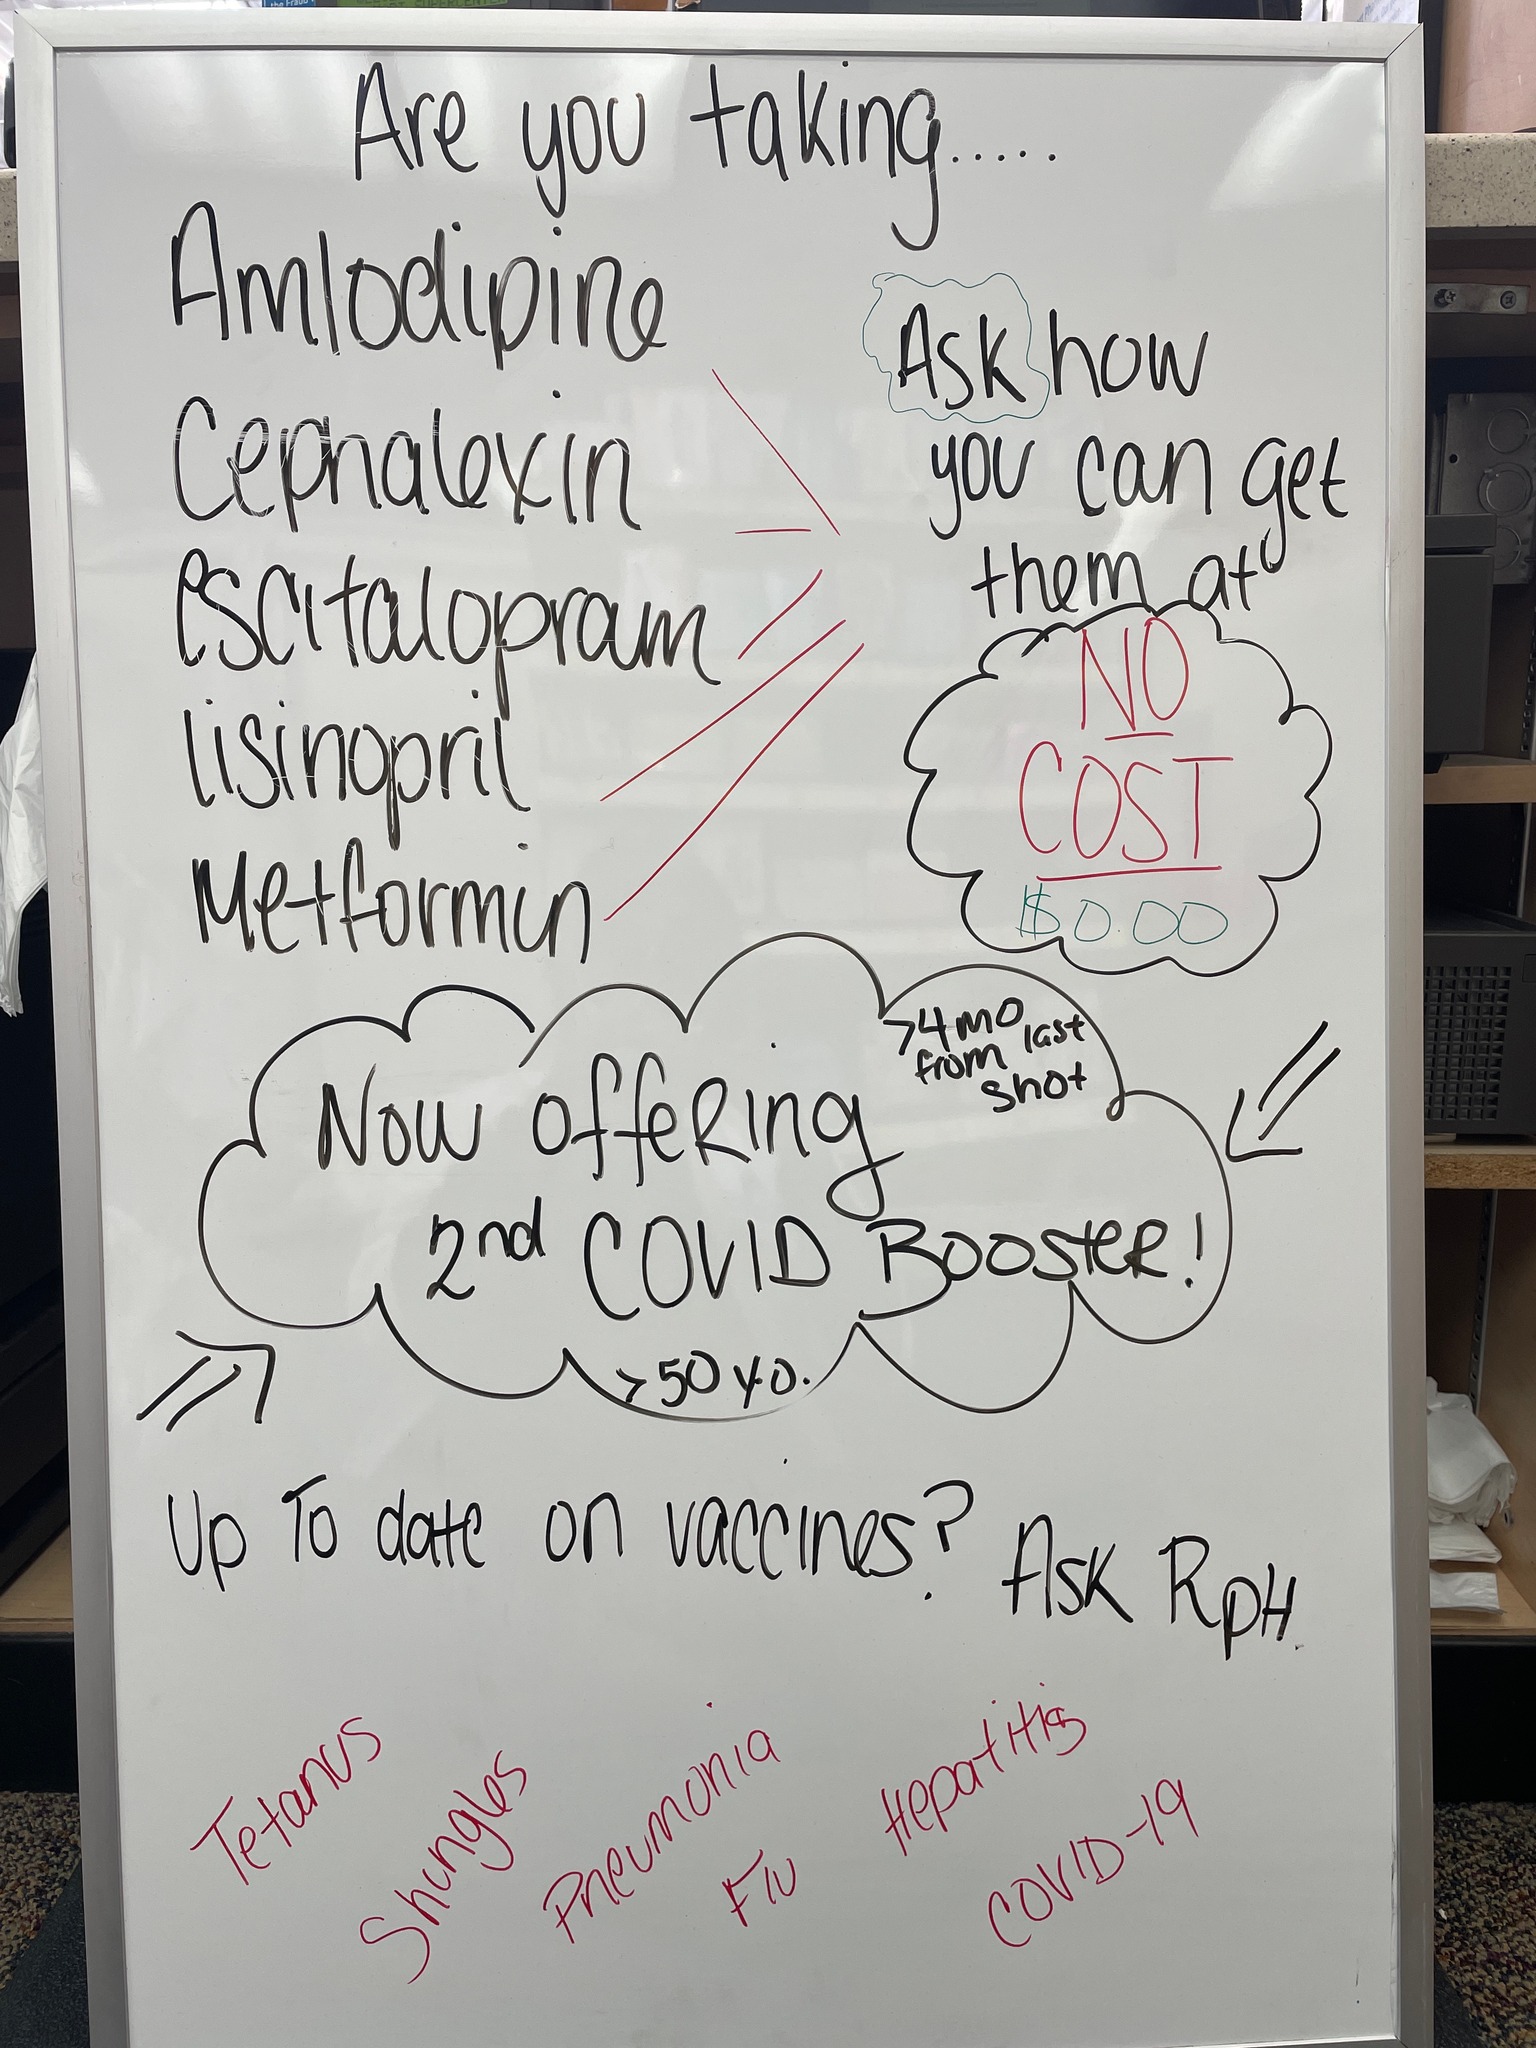 Are you taking.....
Amlodipine
Cephalexin
escitalopram
lisinopril
Metformin
Ask how
you can get
them at
NO
COST
$0.00
>4 mo
from last
shot
Now offering
2nd COVID Booster!
>50 y.o.
Up To date on vaccines? Ask RpH.
Tetanus
Shingles
Pneumonia
Flu
Hepatitis
COVID-19